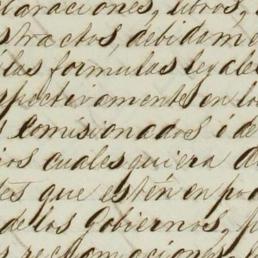 laraciones, libros,
stractos, debidame
las formulas legale
spectivamente en lo
Comisionados ó de
ios cuales quiera d
tes que estén en pod
de los Gobiernos, p
s reclamaciones